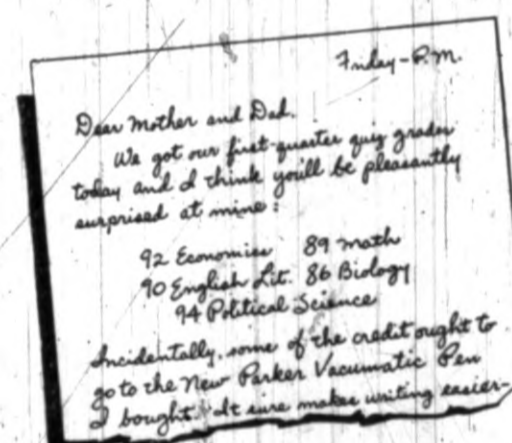 Friday - P.M.
Dear Mother and Dad.
We got our first-quarter quiz grades
today and I think you'll be pleasantly
surprised at mine:
92 Economics 89 Math
90 English Lit. 86 Biology
94 Political Science
Incidentally, some of the credit ought to
go to the New Parker Vacumatic Pen
I bought. It sure makes writing easier-